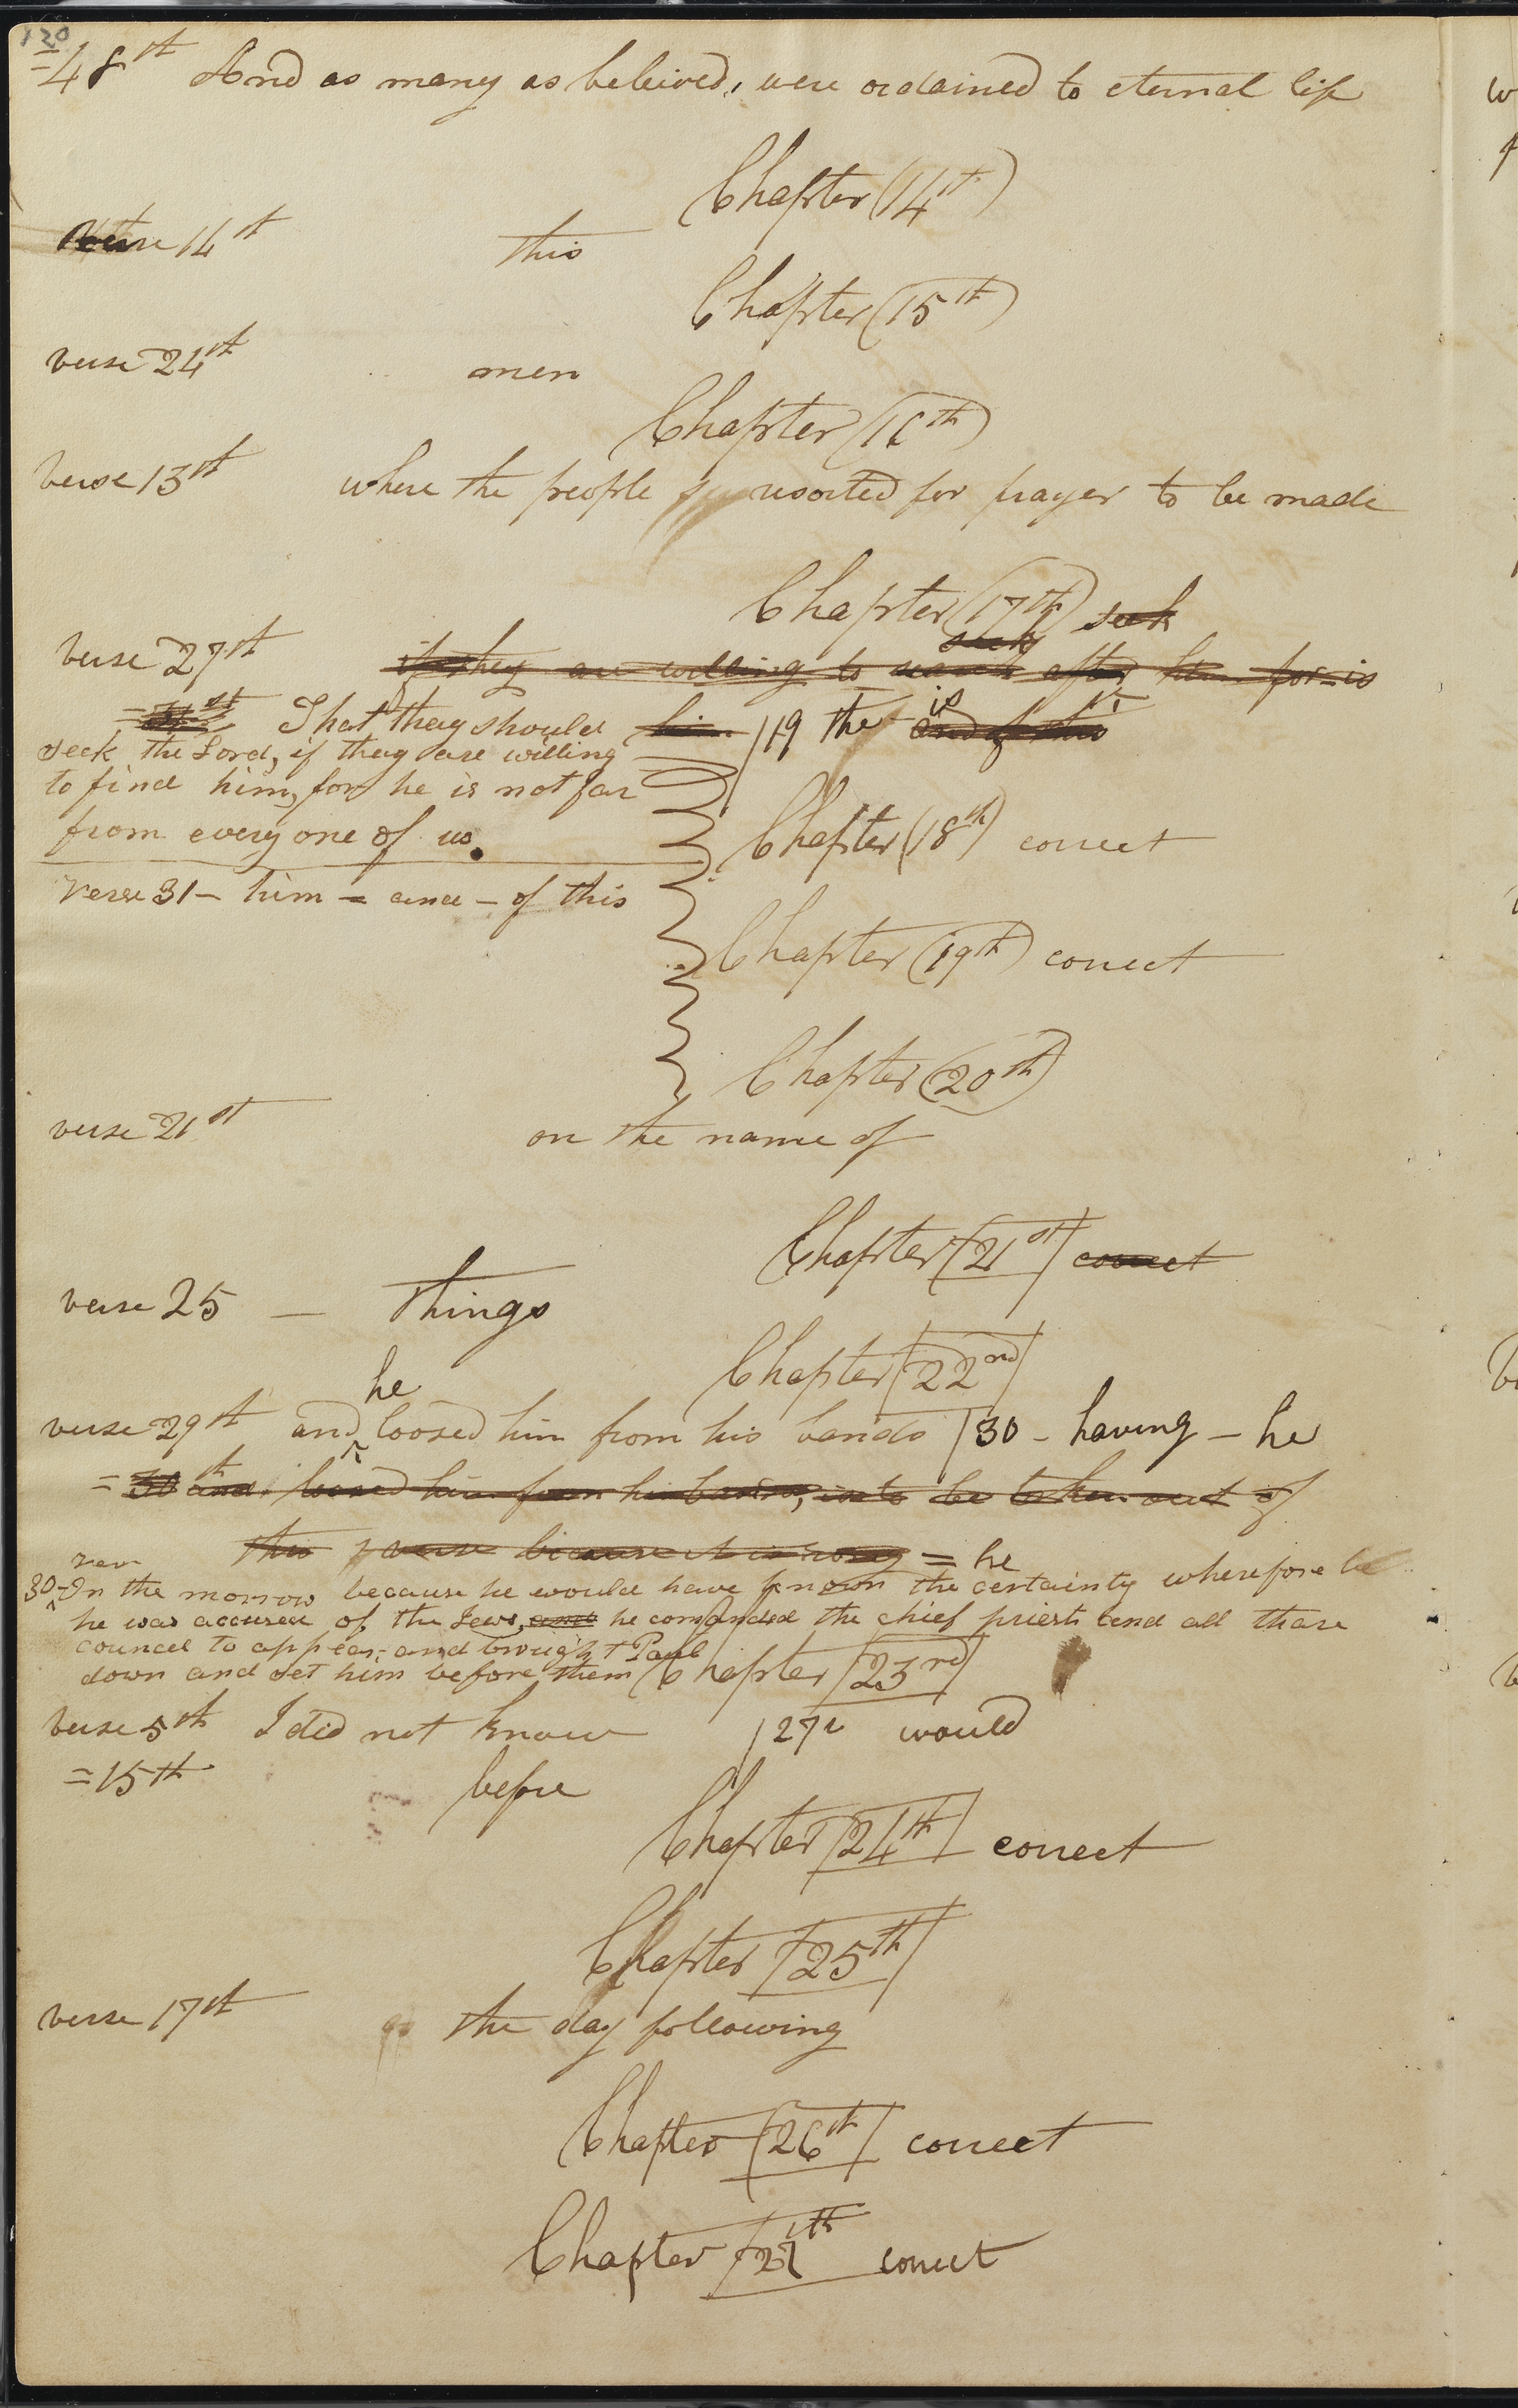 120
=48th And as many as beleived, were ordained to eternal life
Chapter (14th)
verse 14th this
Chapter (15th)
verse 24th men
Chapter (16th)
verse 13th where the people resorted for prayer to be made
Chapter (17th) seek
seek
verse 27th if they are willing to search after him for is
=31st That they should him /19 the is and of this
seek the Lord, if they are willing
to find him, for he is not far
from every one of us.
Chapter (18th) correct
Verse 31 – him = and – of this
Chapter (19th) correct
Chapter (20th)
verse 21st on the name of
Chapter /21st/ correct
verse 25 — things
Chapter /22nd/
he
verse 29th and ^ loosed him from his bands /30 – having – he
=30th and loosed him from his bands, is to be taken out of
this verse because it is wrong = he
30–On the morrow because he would have known the certainty wherefore
he was accused of the Jews, and he comanded the chief priests and all thare
councel to appear, and brought Paul
down and set him before them
Chapter /23rd/
verse 5th I did not know /27 would
=15th before
Chapter /24th/ correct
Chapter /25th/
verse 17th the day following
Chapter /26th/ correct
Chapter /27th correct